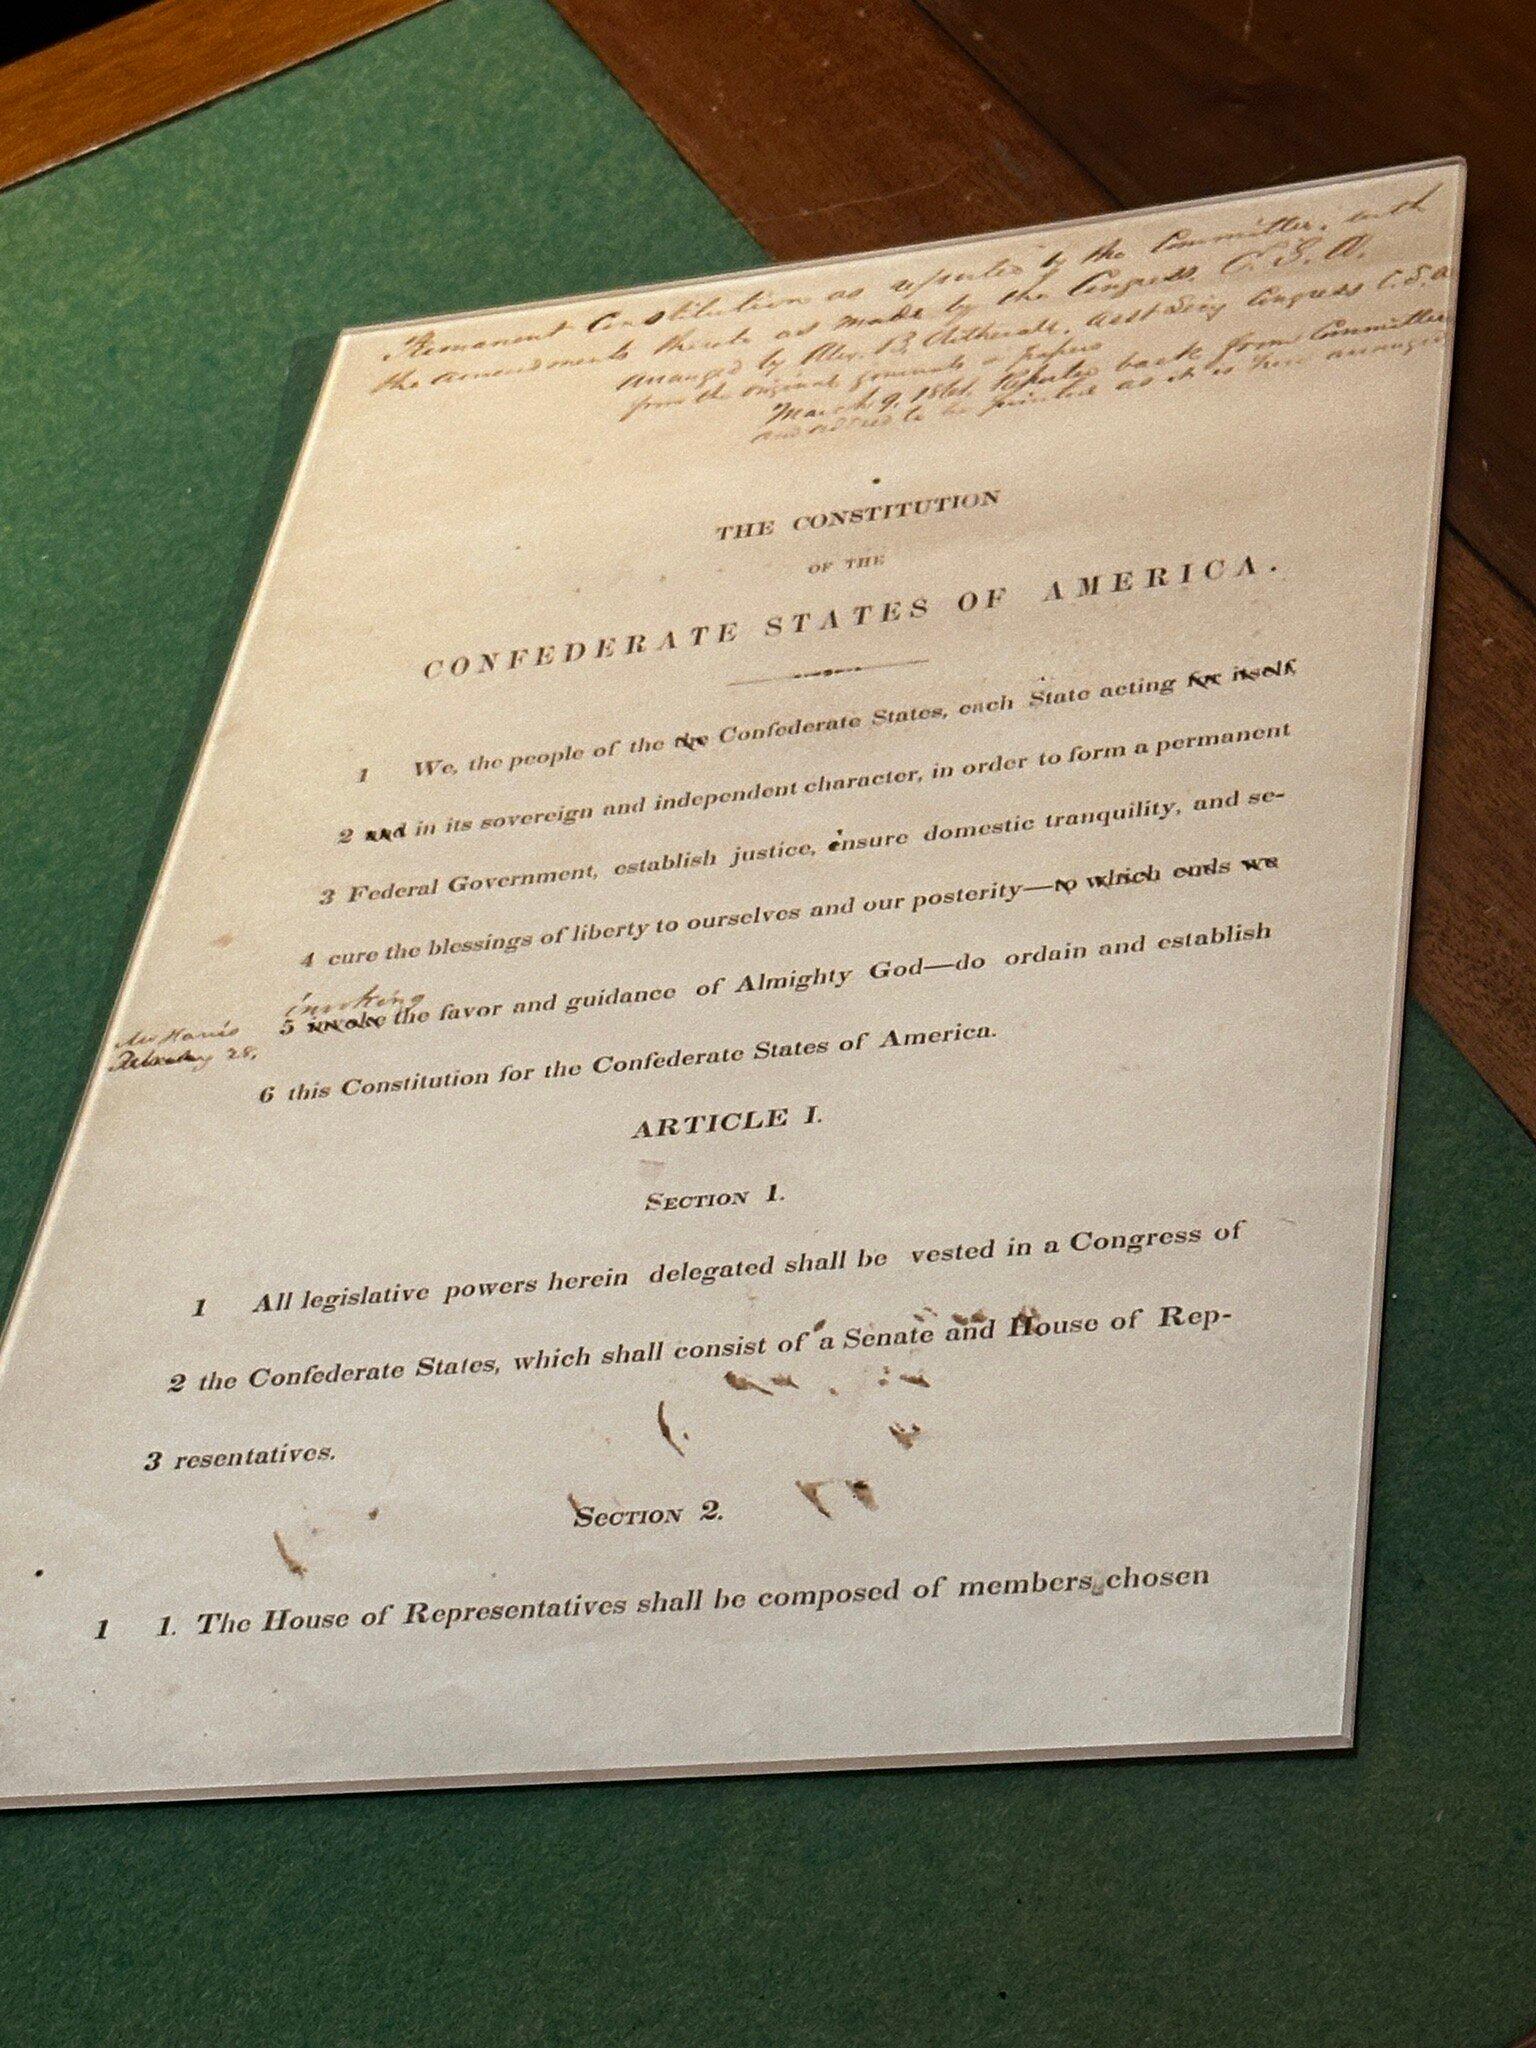 Permanent Constitution as reported by the Committee, with
the amendments thereto as made by the Congress. C. S. A.
Arranged by Alex. B. Clitherall, Asst Secy Congress C. S. A
from the original journals & papers
March 9. 1861. Reported back from Committee
and ordered to be printed as it is here arranged
THE CONSTITUTION
OF THE
CONFEDERATE STATES OF AMERICA.
1 We, the people of the the Confederate States, each State acting for itself,
2 and in its sovereign and independent character, in order to form a permanent
3 Federal Government, establish justice, insure domestic tranquility, and se-
4 cure the blessings of liberty to ourselves and our posterity—to which ends we
invoking
5 invoke the favor and guidance of Almighty God—do ordain and establish
Mr Harris
February 28,
6 this Constitution for the Confederate States of America.
ARTICLE I.
SECTION 1.
1 All legislative powers herein delegated shall be vested in a Congress of
2 the Confederate States, which shall consist of a Senate and House of Rep-
3 resentatives.
SECTION 2.
1 1. The House of Representatives shall be composed of members, chosen